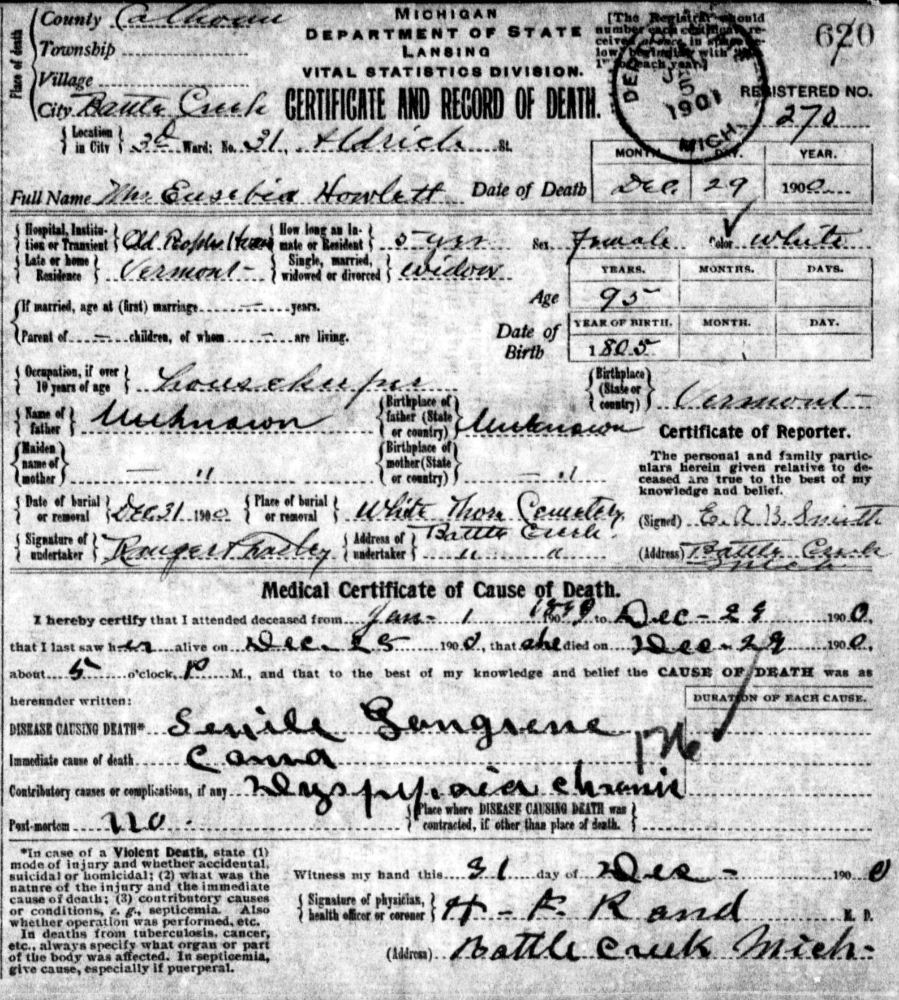 Place of death
County Calhoun
Township
Village
City Battle Creek
MICHIGAN
DEPARTMENT OF STATE
LANSING
VITAL STATISTICS DIVISION.
CERTIFICATE AND RECORD OF DEATH.
[The Registrar should
number each certificate re-
ceived
1" for each year]
1901
MICH.
620
REGISTERED NO.
270
Location in City 3d Ward; No. 31, Aldrich St.
Full Name Mrs Eusebia Howlett Date of Death
MONTH. DAY. YEAR.
Dec. 29 1900
Hospital, Institution or Transient Old Peoples Home How long an Inmate or Resident 5 yrs Sex Female Color white
Late or home Residence Vermont Single, married, widowed or divorced widow
Age
YEARS. MONTHS. DAYS.
95
(If married, age at (first) marriage — years.
(Parent of — children, of whom — are living.
Date of Birth
YEAR OF BIRTH. MONTH. DAY.
1805
Occupation, if over 10 years of age housekeeper
Birthplace (State or country) Vermont
Name of father Unknown Birthplace of father (State or country) Unknown
Maiden name of mother — " Birthplace of mother (State or country) — "
Certificate of Reporter.
The personal and family partic-
ulars herein given relative to de-
ceased are true to the best of my
knowledge and belief.
Date of burial or removal Dec 31 1900 Place of burial or removal White Thorn Cemetery
(Signed) E. A. B. Smith
Signature of undertaker Address of undertaker Battle Creek.
" "
(Address) Battle Creek
Mich
Medical Certificate of Cause of Death.
I hereby certify that I attended deceased from Jan - 1 1899 to Dec - 29 1900,
that I last saw her alive on Dec - 25 1900, that she died on Dec - 29 1900,
about 5 o'clock, P M., and that to the best of my knowledge and belief the CAUSE OF DEATH was as
hereunder written:
DURATION OF EACH CAUSE.
DISEASE CAUSING DEATH* Senile Gangrene
Immediate cause of death Coma
Contributory causes or complications, if any chronic
Place where DISEASE CAUSING DEATH was contracted, if other than place of death.
Post-mortem no.
*In case of a Violent Death, state (1)
mode of injury and whether accidental,
suicidal or homicidal; (2) what was the
nature of the injury and the immediate
cause of death; (3) contributory causes
or conditions, e. g., septicemia. Also
whether operation was performed, etc.
In deaths from tuberculosis, cancer,
etc., always specify what organ or part
of the body was affected. In septicemia,
give cause, especially if puerperal.
Witness my hand this 31 day of Dec - 1900
Signature of physician, health officer or coroner Rand M. D.
(Address) Battle Creek Mich-